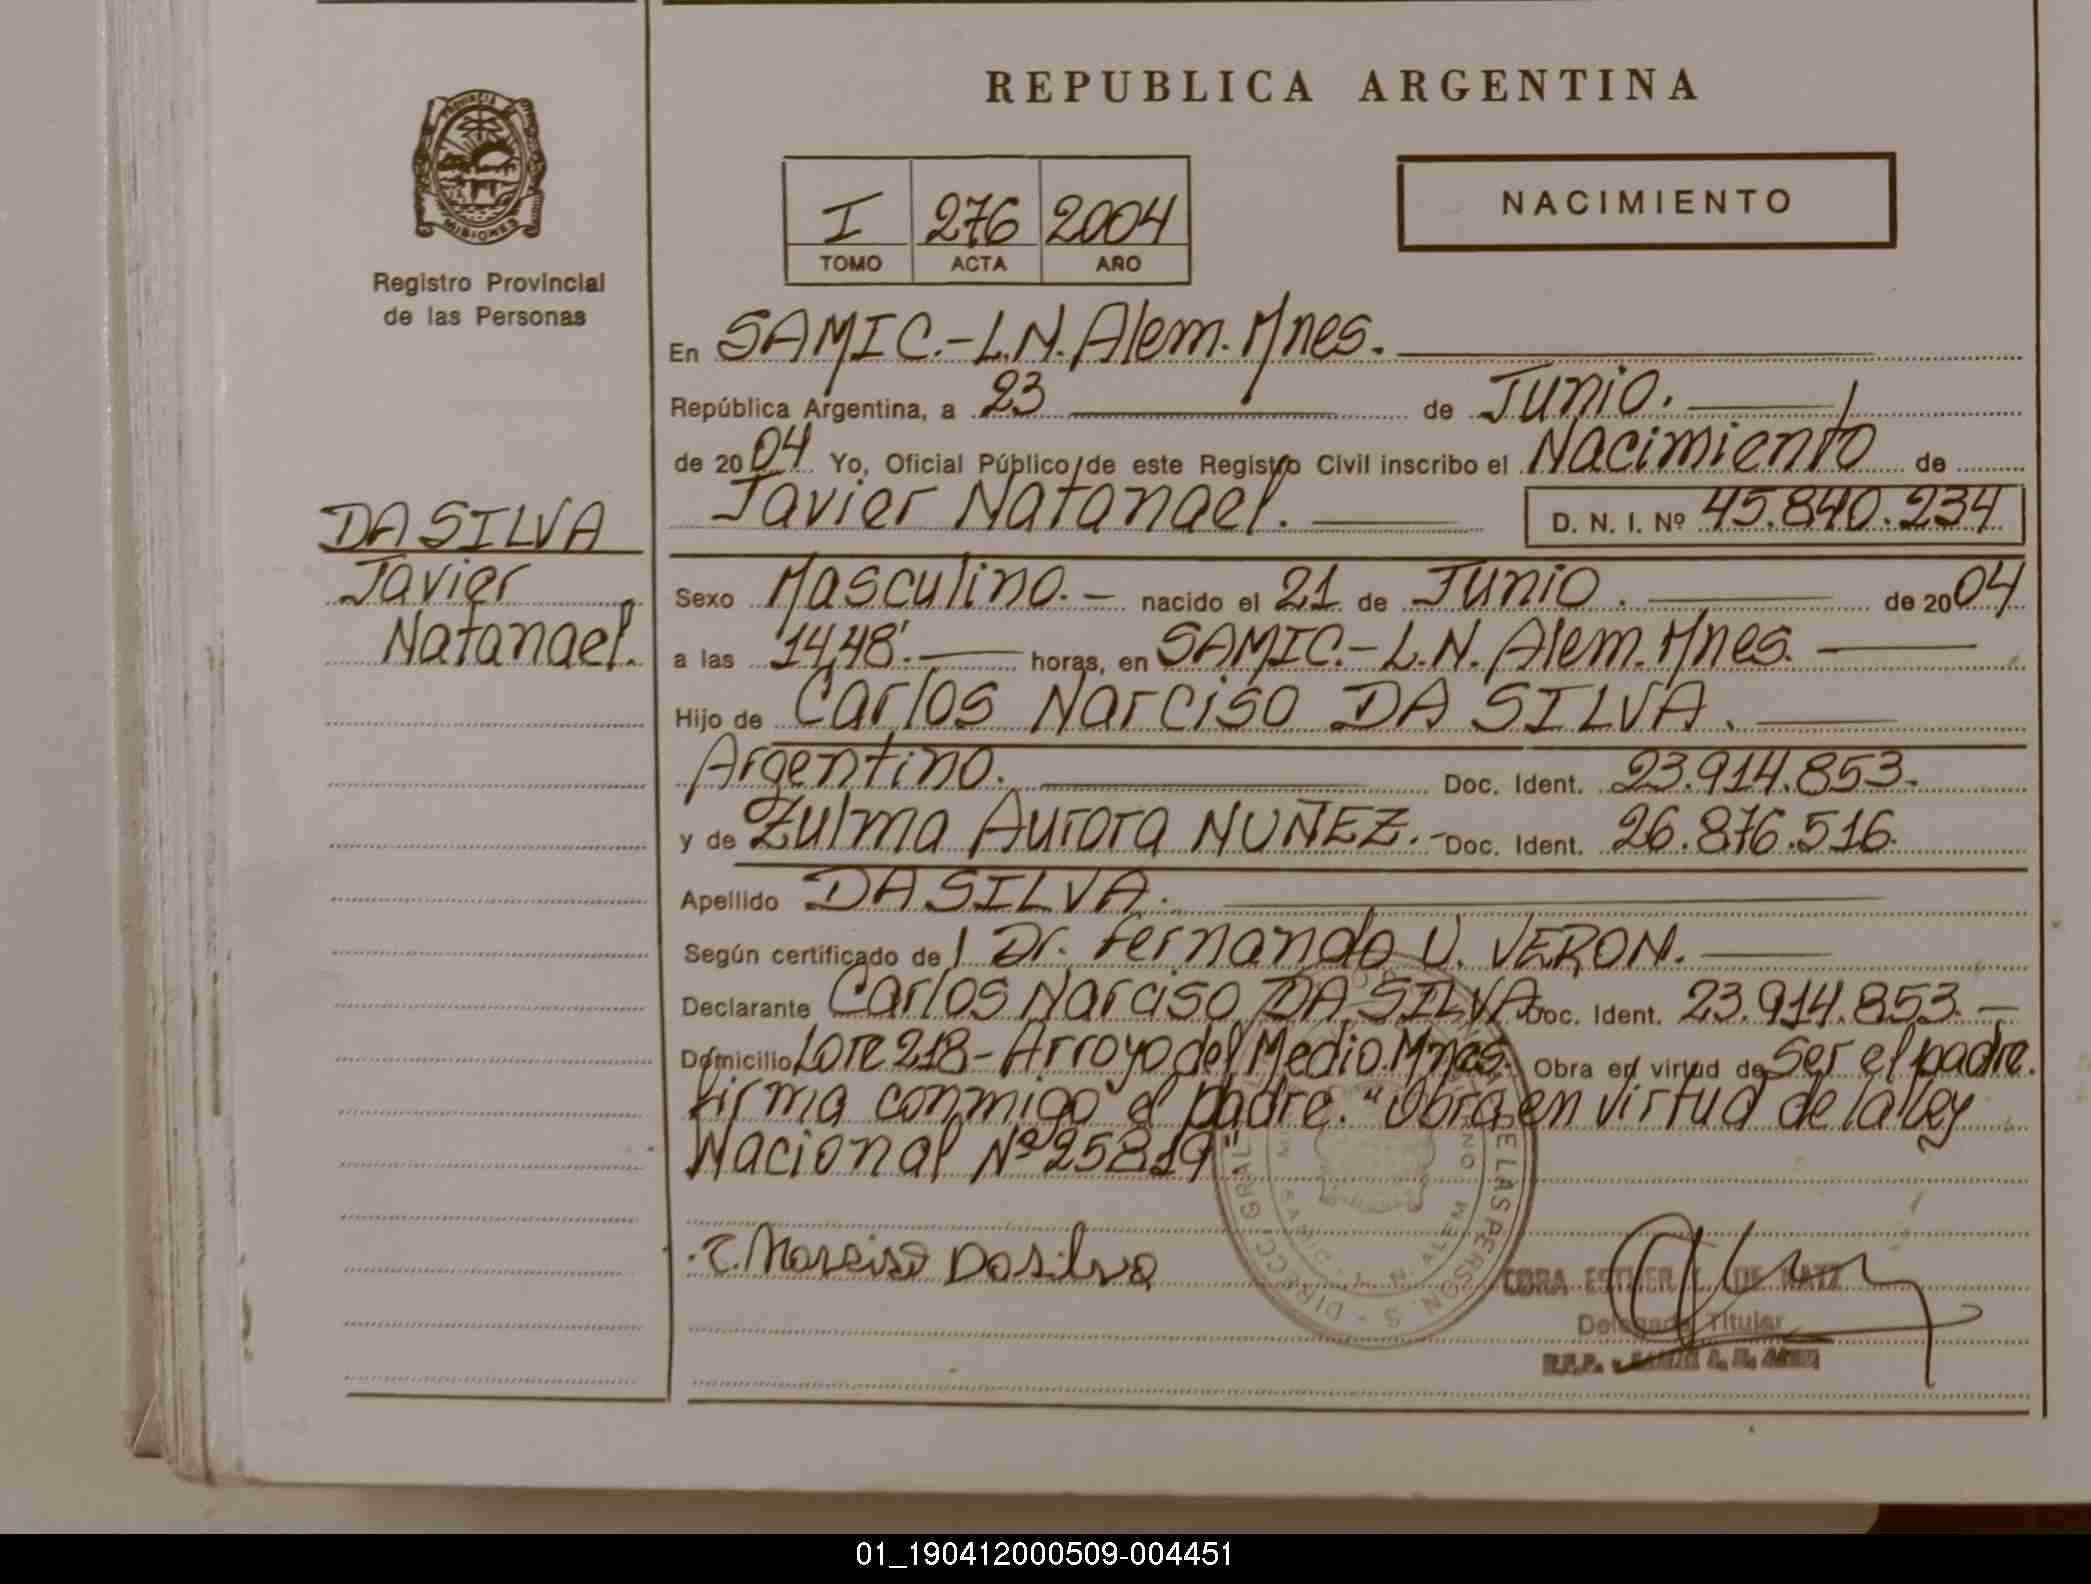 REPUBLICA ARGENTINA
PROVINCIA DE
MISIONES
Registro Provincial
de las Personas
I 276 2004
TOMO ACTA AÑO
NACIMIENTO
En SAMIC.-L.N. Alem. Mnes.
República Argentina, a 23 de Junio.
de 2004 Yo, Oficial Público de este Registro Civil inscribo el Nacimiento de
Javier Natanael. D. N. I. Nº 45.840.234
DA SILVA
Javier
Natanael.
Sexo Masculino.- nacido el 21 de Junio. de 2004
a las 14,48'. horas, en SAMIC.-L.N. Alem. Mnes.
Hijo de Carlos Narciso DA SILVA.
Argentino. Doc. Ident. 23.914.853.-
y de Zulma Aurora NUÑEZ.- Doc. Ident. 26.876.516.
Apellido DA SILVA.
Según certificado de Dr. Fernando U. VERON.
Declarante Carlos Narciso DA SILVA Doc. Ident. 23.914.853.-
Domicilio Lote 218-Arroyo del Medio. Mnes. Obra en virtud de Ser el padre.
firma conmigo el padre. "Obra en virtud de la ley
Nacional Nº 25819"
C. Narciso Da silva
CORA ESTHER DE KATZ
Delegada Titular
R.P.P.
01_190412000509-004451